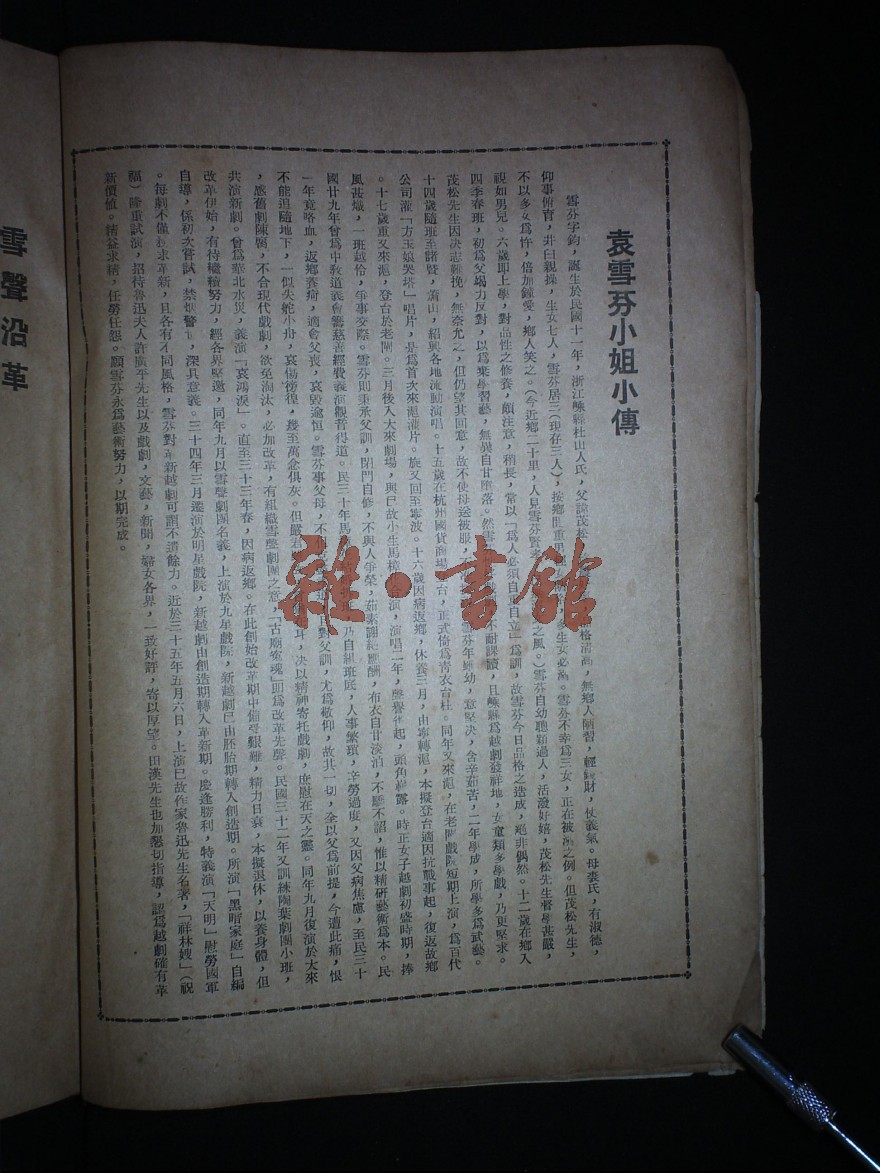 袁雪芬小姐小傳
雪芬字鈞，誕生於民國十一年，浙江嵊縣杜山人氏，父諱茂松，格清高，無鄉人陋習，輕錢財，仗義氣。母裘氏，有淑德，
仰事俯育，井臼親操，生女七人，雪芬居三（現存三人），按鄉間重男，生女必溺。雪芬不幸為三女，正在被溺之例。但茂松先生，
不以多女為忤，倍加鍾愛，鄉人笑之。（今近鄉二十里，人見雪芬賢孝，之風。）雪芬自幼聰穎過人，活潑好嬉，茂松先生督學甚嚴，
視如男兒。六歲即上學，對品性之修養，頗注意，稍長，常以「為人必須自重自立」為訓，故雪芬今日品格之造成，絕非偶然。十二歲在鄉入
四季春班，初為父竭力反對，以為棄學習藝，無異自甘墮落。然雪，不耐課讀，且嵊縣為越劇發祥地，女童類多學戲，乃更堅求。
茂松先生因決志難挽，無奈允之，但仍望其回意，故不使母送被服，雪芬年雖幼，意堅決，含辛茹苦，二年學成，所學多為武藝。
十四歲隨班至諸暨，蕭山，紹興各地流動演唱。十五歲在杭州國貨商場登台，正式倚為青衣台柱。同年又來滬，在老閘戲院短期上演，為百代
公司灌「方玉娘哭塔」唱片，是為首次來滬灌片。旋又回至寧波。十六歲因病返鄉，休養三月，由寧轉滬，本擬登台適因抗戰事起，復返故鄉
。十七歲重又來滬，登台於老閘。三月後入大來劇場，與已故小生馬樟花合演，演唱二年，聲譽雀起，頭角崢露。時正女子越劇初盛時期，捧
風甚熾，一班越伶，爭事交際。雪芬則秉承父訓，閉門自修，不與人爭榮，茹素謝絕應酬，布衣自甘淡泊，不驕不諂，惟以精研藝術為本。民
國廿九年曾為中教道義會籌慈善經費義演觀音得道。民三十年馬，乃自組班底，人事繁瑣，辛勞過度，又因父病焦慮，至民三十
一年竟咯血，返鄉養疴，適會父喪，哀毀逾恒。雪芬事父母，不，對父訓，尤為敬仰，故其一切，全以父為前提，今遭此痛，恨
不能追隨地下，一似失舵小舟，哀傷徬徨，幾至萬念俱灰。但嚴君，耳，決以精神寄托戲劇，庶慰在天之靈。同年九月復演於大來
，感舊劇陳腐，不合現代戲劇，欲免淘汰，必加改革，有組織雪聲劇團之意，「古廟冤魂」即為改革先聲。民國三十二年又訓練陶葉劇團小班，
共演新劇。曾為華北水災，義演「哀鴻淚」。直至三十三年春，因病返鄉。在此創始改革期中備受艱難，精力日衰，本擬退休，以養身體，但
改革伊始，有待繼續努力，經各界堅邀，同年九月以雪聲劇團名義，上演於九星戲院，新越劇已由胚胎期轉入創造期。所演「黑暗家庭」自編
自導，係初次嘗試，禁烟警世，深具意義。三十四年三月遷演於明星戲院，新越劇由創造期轉入革新期。慶逢勝利，特義演「天明」慰勞國軍
。每劇不僅極求革新，且各有不同風格，雪芬對革新越劇可謂不遺餘力。近於三十五年五月六日，上演已故作家魯迅先生名著，「祥林嫂」（祝
福）隆重試演，招待魯迅夫人許廣平先生以及戲劇，文藝，新聞，婦女各界，一致好評，寄以厚望。田漢先生也加懇切指導，認為越劇確有革
新價值。精益求精，任勞任怨。願雪芬永為藝術努力，以期完成。
雪聲沿革
雜·書館